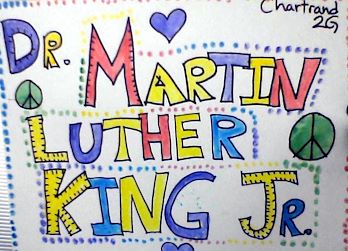 Chartrand
2G
DR. MARTIN
LUTHER
KING JR.